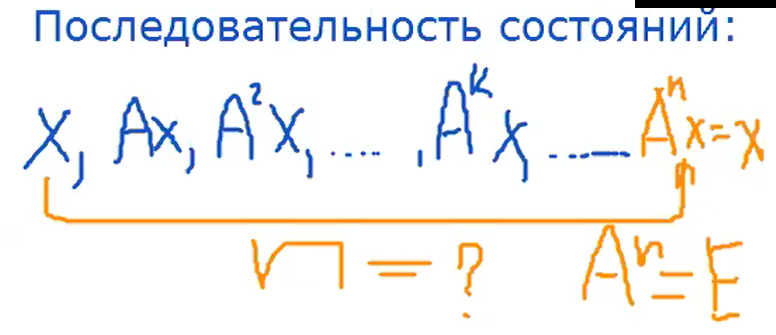 Последовательность состояний:
X, Ax, A²X, ...., A^k X, ..... A^n x = x
n = ? A^n = E